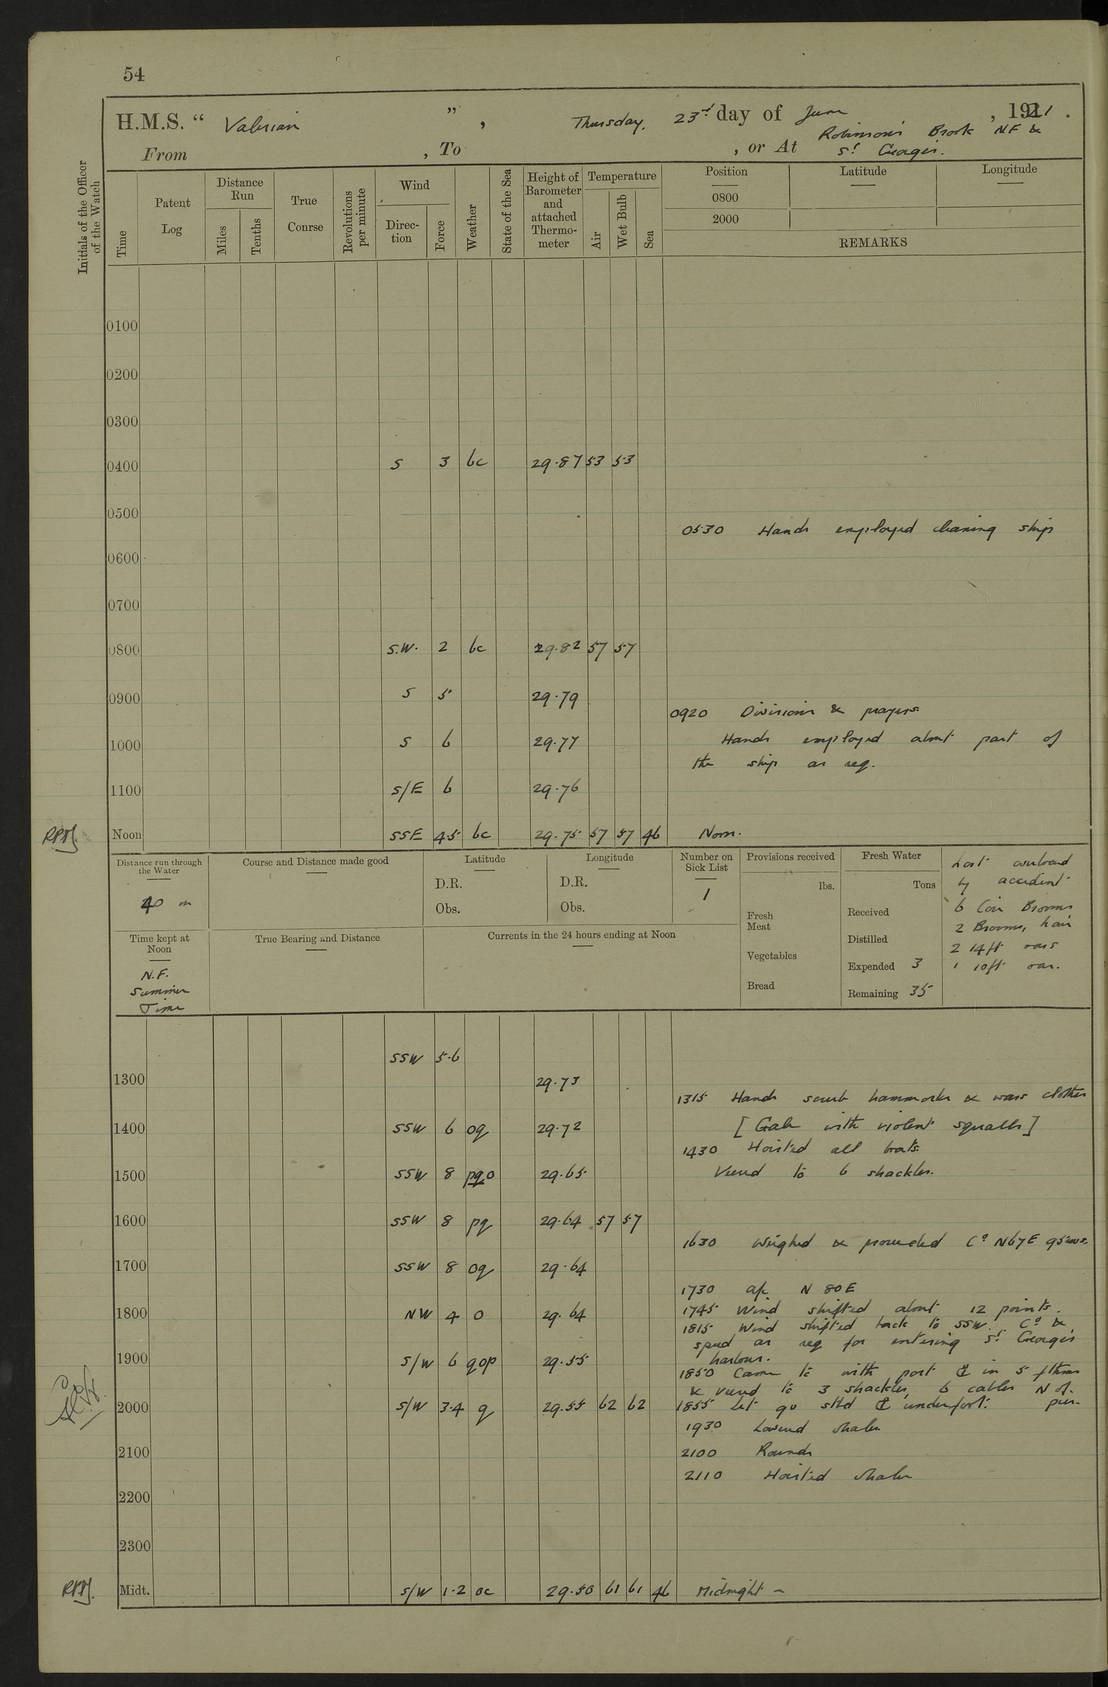 54
H.M.S. “ Valerian ”, Thursday, 23rd day of June, 1921.
From , To , or At Robinson's Brook NF &
St George's.
Initials of the Officer of the Watch
Time
Patent Log
Distance Run
Miles
Tenths
True Course
Revolutions per minute
Wind
Direction
Force
Weather
State of the Sea
Height of Barometer and attached Thermometer
Temperature
Air
Wet Bulb
Sea
Position Latitude Longitude
0800
2000
REMARKS
0100
0200
0300
0400 S 3 bc 29.87 53 53
0500
0530 Hands employed cleaning ship
0600
0700
0800 S.W. 2 bc 29.82 57 57
0900 S 5 29.79
0920 Divisions & prayers
1000 S 6 29.77 Hands employed about part of
the ship as req.
1100 S/E 6 29.76
Noon SSE 4.5 bc 29.75 57 57 46 Noon.
Distance run through the Water
40 m
Course and Distance made good
Latitude
D.R.
Obs.
Longitude
D.R.
Obs.
Number on Sick List
1
Provisions received
lbs.
Fresh Meat
Vegetables
Bread
Fresh Water
Tons
Received
Distilled
Expended 3
Remaining 35
Lost overboard
by accident
6 Coir Brooms
2 Brooms, hair
2 14ft oars
1 10ft oar.
Time kept at Noon
N.F.
Summer
Time
True Bearing and Distance
Currents in the 24 hours ending at Noon
SSW 5.6
1300 29.73
1315 Hands scrub hammocks & wash clothes
1400 SSW 6 oq 29.72 [Gale with violent squalls]
1430 Hoisted all boats
1500 SSW 8 pqo 29.65 Veered to 6 shackles.
1600 SSW 8 pq 29.64 57 57
1630 Weighed & proceeded Co N67E
1700 SSW 8 oq 29.64
1730 a/c N 80E
1800 NW 4 o 29.64 1745 Wind shifted about 12 points.
1815 Wind shifted back to SSW. Co &
speed as req for entering St George's
harbour.
1900 S/W 6 qop 29.55
1850 Came to with port in 5 fthms
& veered to 3 shackles, 6 cables N of
2000 S/W 3.4 q 29.55 62 62 1855 Let go stbd underfoot. pier.
1930 Lowered whaler
2100 2100 Rounds
2110 Hoisted whaler
2200
2300
Midt. S/W 1.2 oc 29.50 61 61 46 Midnight –